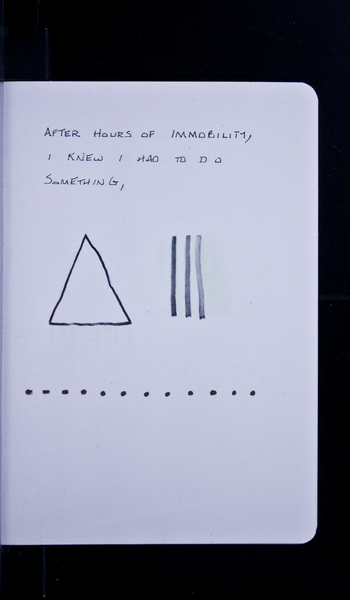 AFTER HOURS OF IMMOBILITY,
I KNEW I HAD TO DO
SOMETHING,